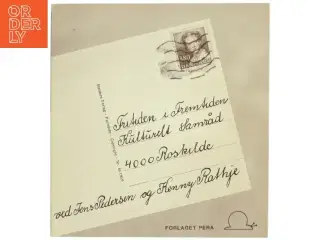 OR
DER
LY
Fritiden i Fremtiden
Kulturelt Samråd
4000 Roskilde
ved Jens Pedersen og Henny Rathje
FORLAGET PERA